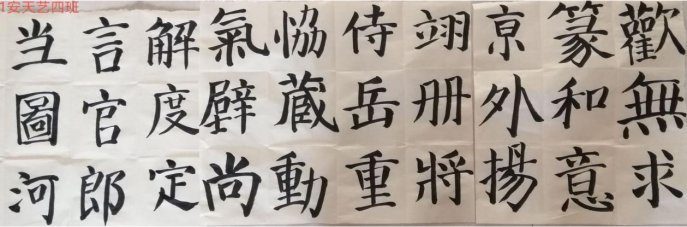 1安天艺四班
当言解氣恊侍翊亰篆歡
圖官度壁蔵岳册外和無
河郎定尚動重將揚意求